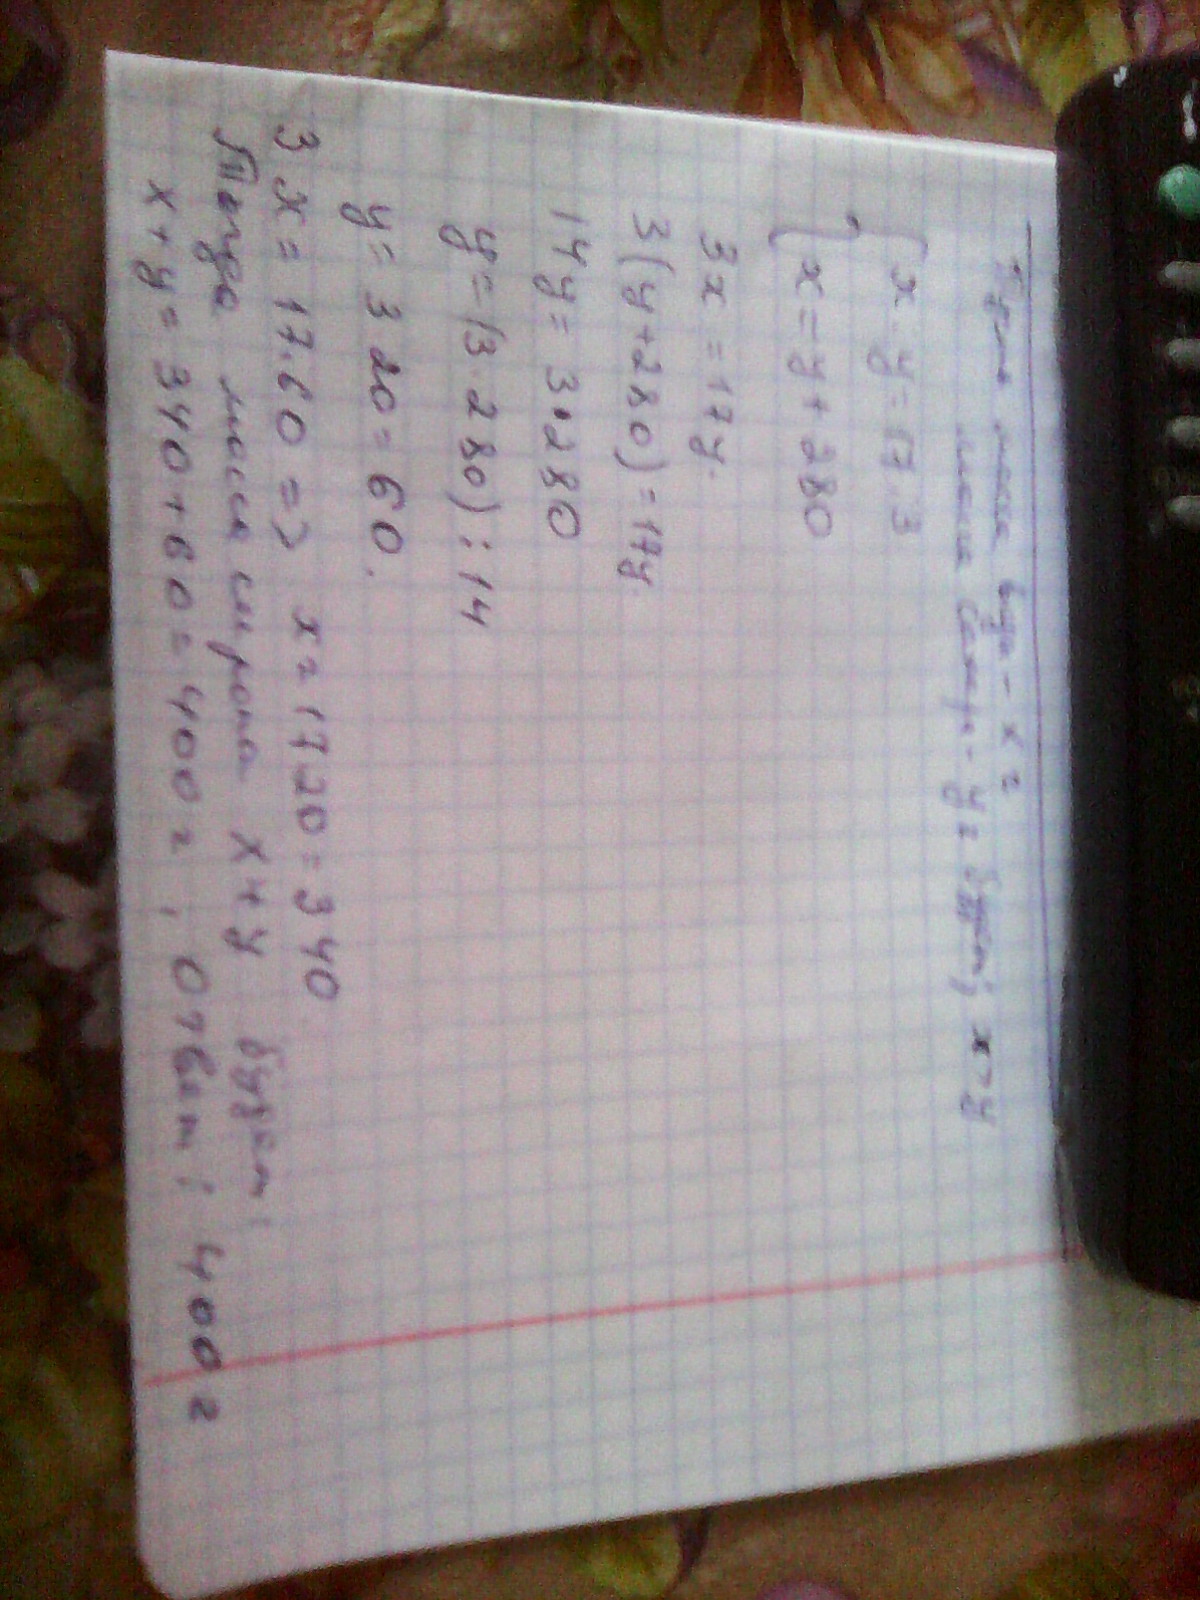 Пусть масса воды - x г
масса сахара - y г будет, x > y
{ x : y = 17 : 3
{ x = y + 280
3x = 17y.
3(y + 280) = 17y.
14y = 3 • 280
y = (3 · 280) : 14
y = 3 20 = 60.
3 x = 17.60 => x = 17 20 = 340
Тогда масса сиропа x + y будет:
x + y = 340 + 60 = 400 г, Ответ: 400 г